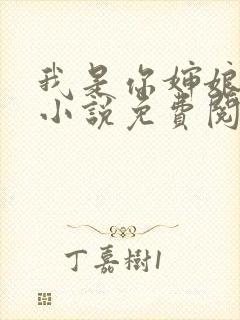 我是你婶娘
小說免費閱
丁嘉樹1